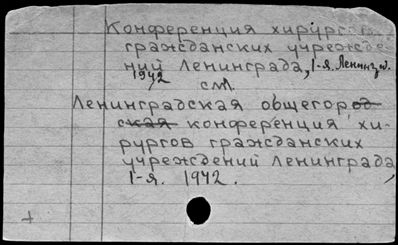 Конференция хирургов
гражданских учрежде-
ний Ленинграда, 1-я. Ленинград.
1942
см.
Ленинградская общегород-
ская конференция хи-
рургов гражданских
учреждений Ленинграда,
1-я. 1942.